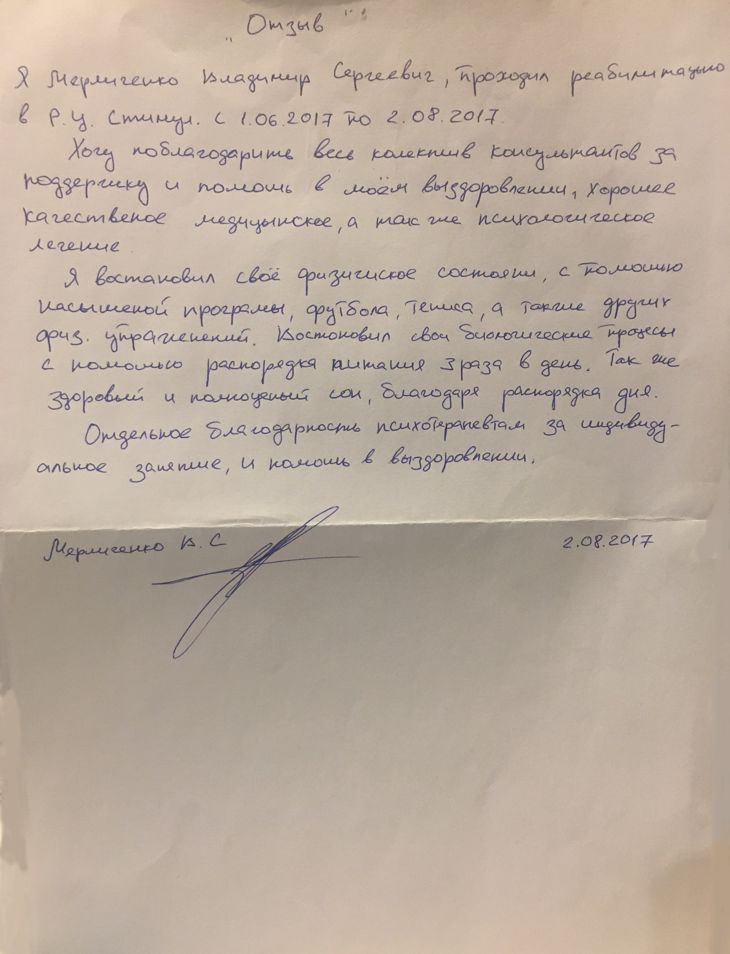 „Отзыв"
Я Мерличенко Владимир Сергеевич, проходил реабилитацию
в Р.Ц. Стимул. с 1.06.2017 по 2.08.2017.
Хочу поблагодарить весь колектив консультантов за
поддержку и помощь в моём выздоровлении, хорошее
качественое медицынское, а так же психологическое
лечение.
Я востановил своё физическое состояни, с помощью
насышеной програмы, футбола, тениса, а также других
физ. упражнений. Востоновил свои биологические процесы
с помощью распорядка питания 3 раза в день. Так же
здоровый и полноценый сон, благодаря распорядка дня.
Отдельное благодарность психотерапевтам за индивиду-
альное занятие, и помощь в выздоровлении.
Мерличенко В. С
2.08.2017